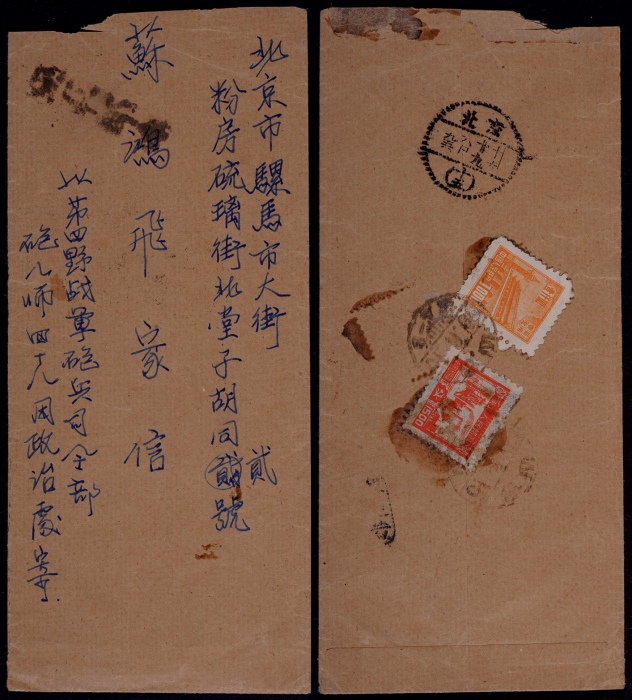 北京市騾馬市大街
粉房硫璃街北堂子胡同貳號
貳
蘇鴻飛家信
从第四野战軍砲兵司令部
砲八师四十八团政治處寄.
北京